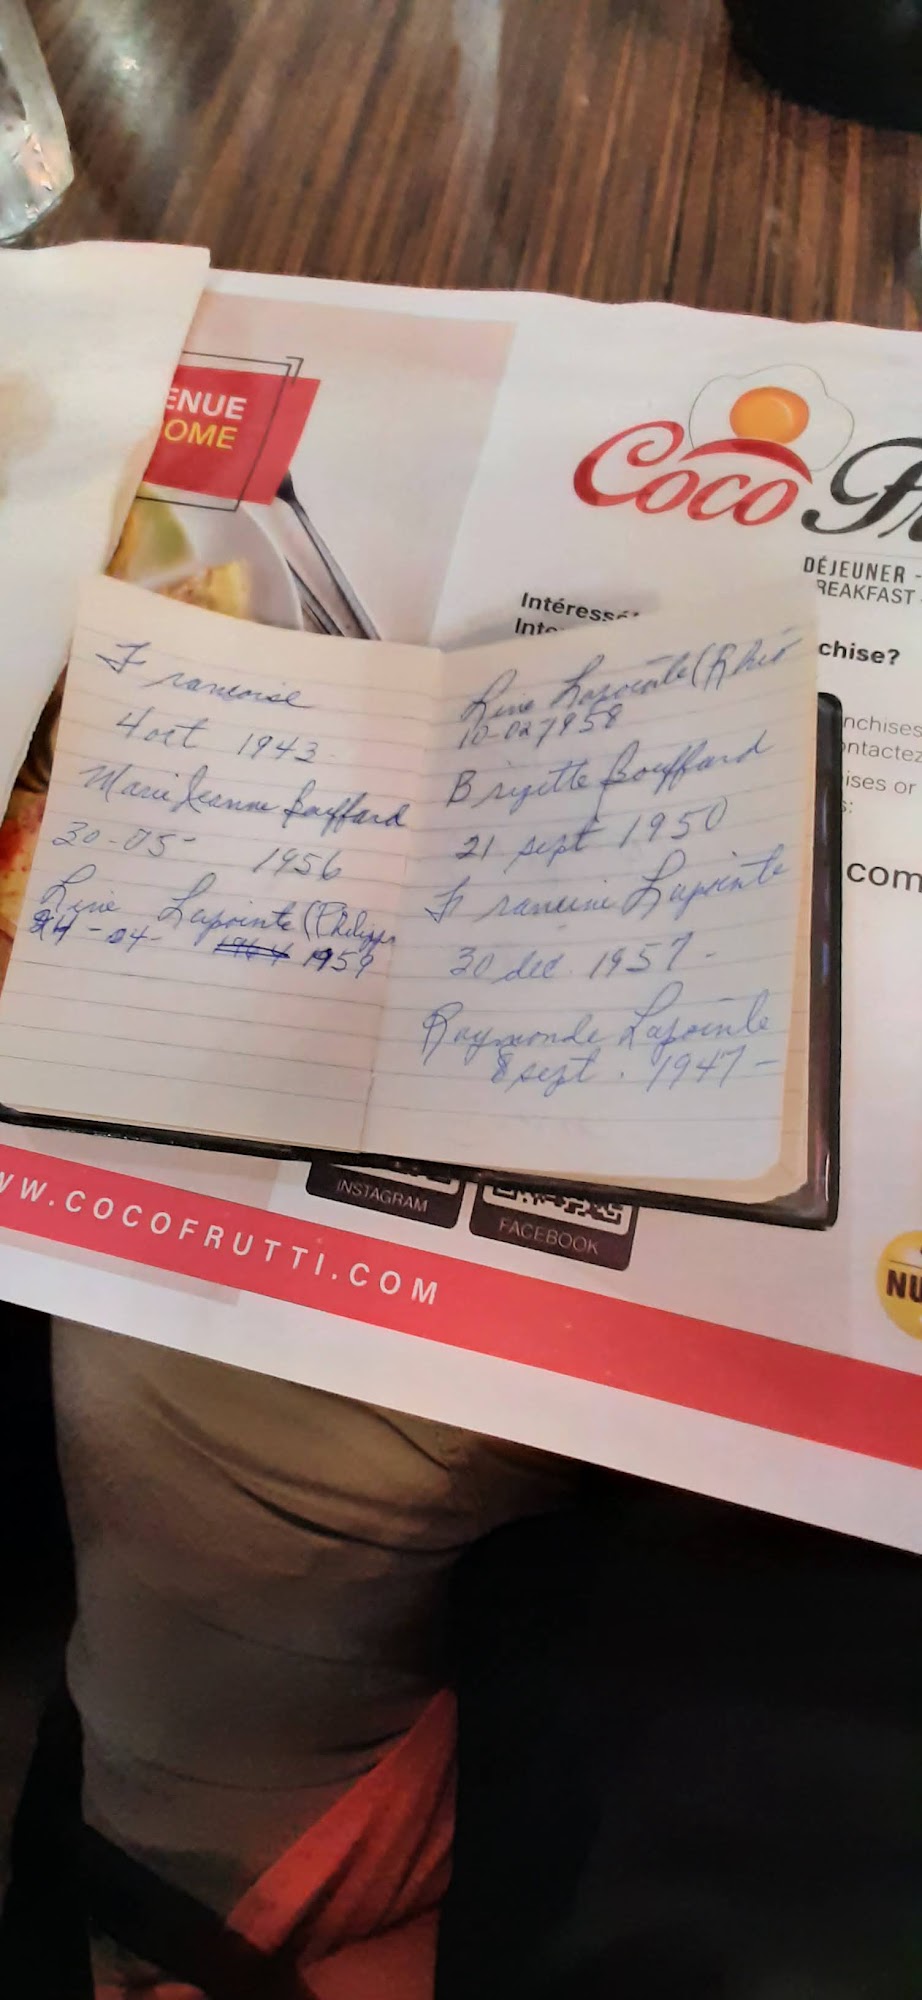 ENUE
OME
Coco
DÉJEUNER -
REAKFAST
Intéressé
Inte
chise?
nchises
ontactez
ises or
s:
com
Françoise
4 oct 1943
Marie Jeanne Bouffard
30-05- 1956
Line Lapointe (Philippe
24-04- 1964 1959
Line Lapointe (Rhéo
10-02 1958
Brigette Bouffard
21 sept 1950
Francine Lapointe
30 dec. 1957-
Raymonde Lapointe
8 sept. 1947-
INSTAGRAM
FACEBOOK
WW.COCOFRUTTI.COM
NU